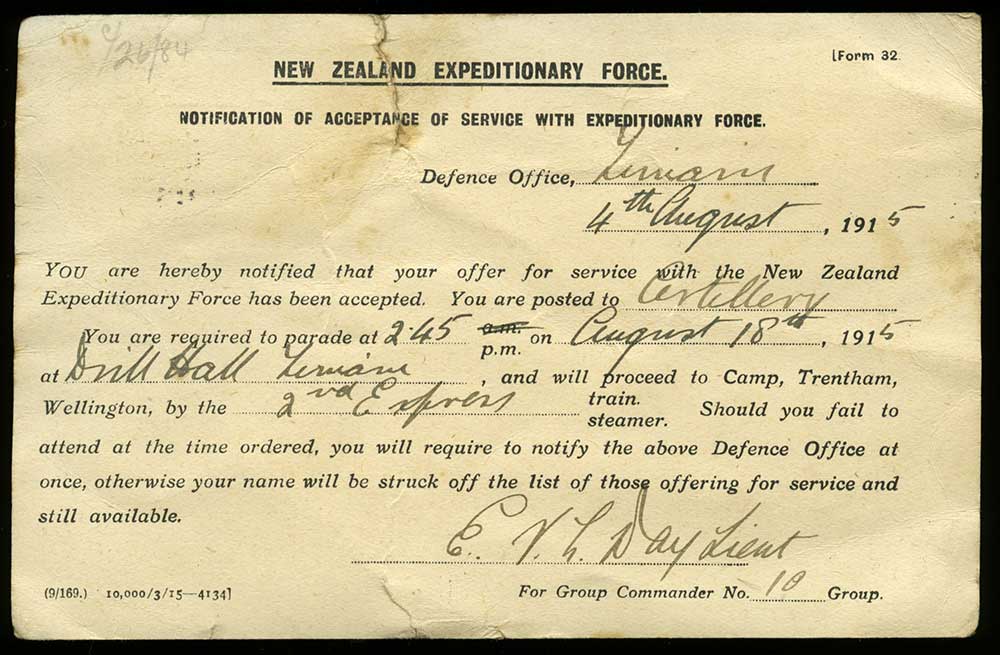 2/26/84
[Form 32.
NEW ZEALAND EXPEDITIONARY FORCE.
NOTIFICATION OF ACCEPTANCE OF SERVICE WITH EXPEDITIONARY FORCE.
Defence Office, Timaru
4th August, 1915
YOU are hereby notified that your offer for service with the New Zealand
Expeditionary Force has been accepted. You are posted to Artillery
You are required to parade at 2.45 a.m. p.m. on August 18th, 1915
at Drill Hall Timaru, and will proceed to Camp, Trentham,
Wellington, by the 2nd Express train. steamer. Should you fail to
attend at the time ordered, you will require to notify the above Defence Office at
once, otherwise your name will be struck off the list of those offering for service and
still available.
E. V. L. Day Lieut
(9/169.) 10,000/3/15—4134]
For Group Commander No. 10 Group.